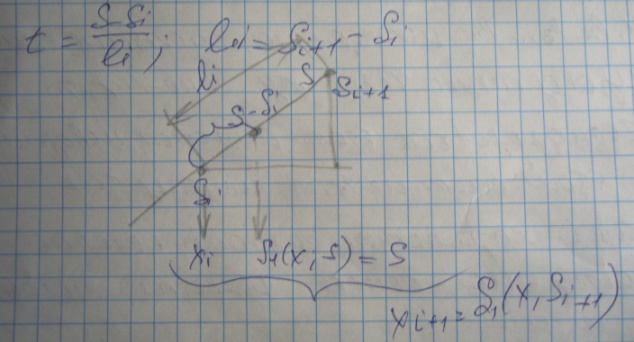 t = (S-Si)/li ; li = Si+1 - Si
li
S
Si+1
S-Si
Si
xi S1(x; s) = S
xi+1 = S1(x, Si+1)